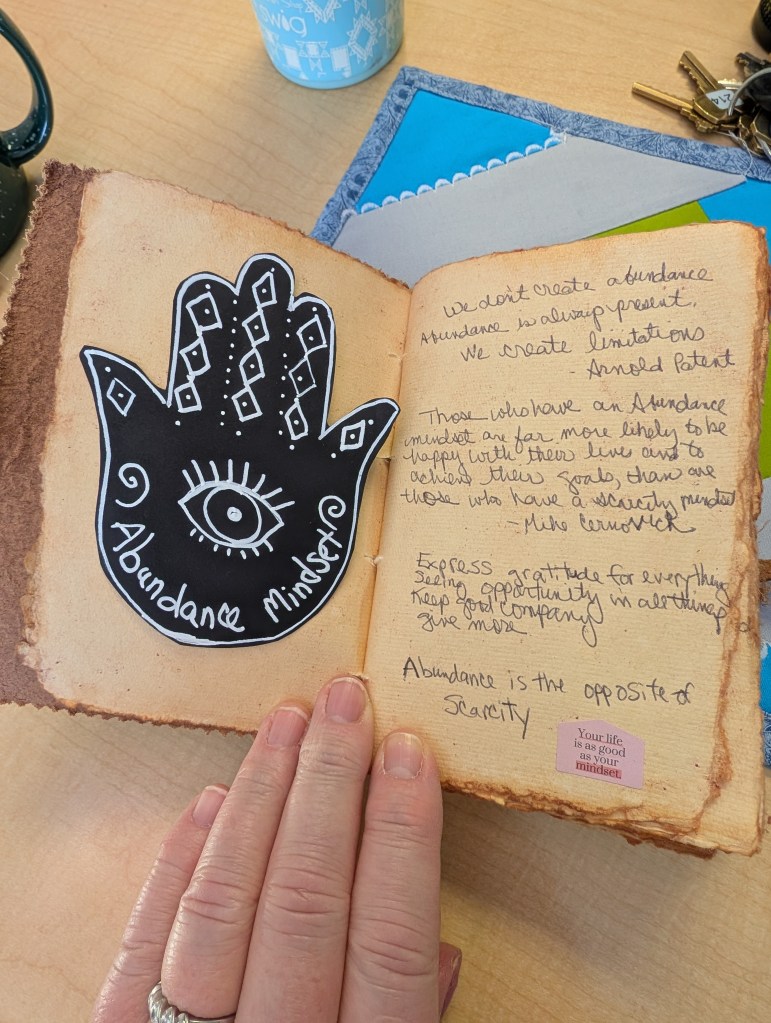 swig
214
Abundance Mindset
We don't create abundance
Abundance is always present.
We create limitations
- Arnold Patent
Those who have an Abundance
mindset are far more likely to be
happy with their live and to
achieve their goals, than are
those who have a scarcity mindset
- Mike Cernovich
Express gratitude for everything
seeing opportunity in all things
keep good company
give more
Abundance is the opposite of
Scarcity
Your life
is as good
as your
mindset.